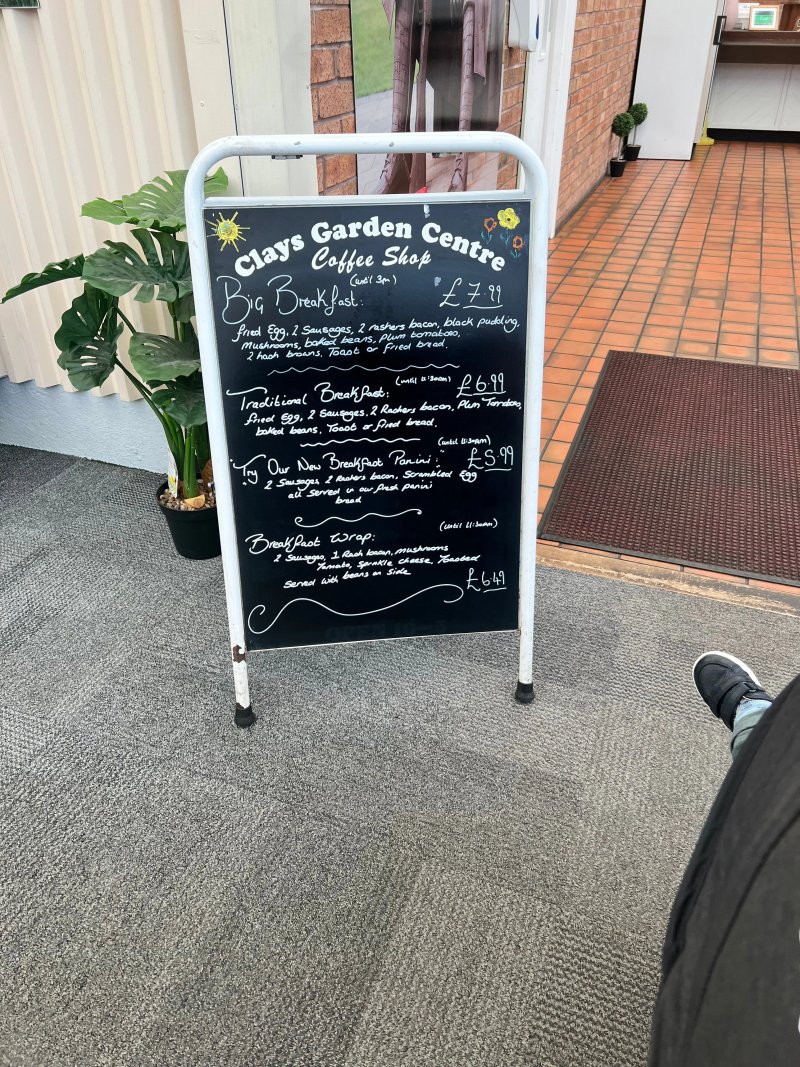 Clays Garden Centre
Coffee Shop
(until 3pm)
Big Breakfast: £7.99
fried Egg, 2 Sausages, 2 rashers bacon, black pudding,
Mushrooms, baked beans, plum tomatoes,
2 hash browns, Toast or fried bread.
(until 11:30am)
Traditional Breakfast: £6.99
fried Egg, 2 Sausages, 2 Rashers bacon, Plum Tomatoes,
baked beans, Toast or fried bread.
(until 11:30am)
"Try Our New Breakfast Panini:" £5.99
2 Sausages, 2 Rashers bacon, Scrambled Egg
all served in our fresh panini
bread
(until 11:30am)
Breakfast Wrap:
2 Sausages, 1 Rash bacon, mushrooms
Tomato, Sprinkle cheese, Toasted
Served with beans on side
£6.49